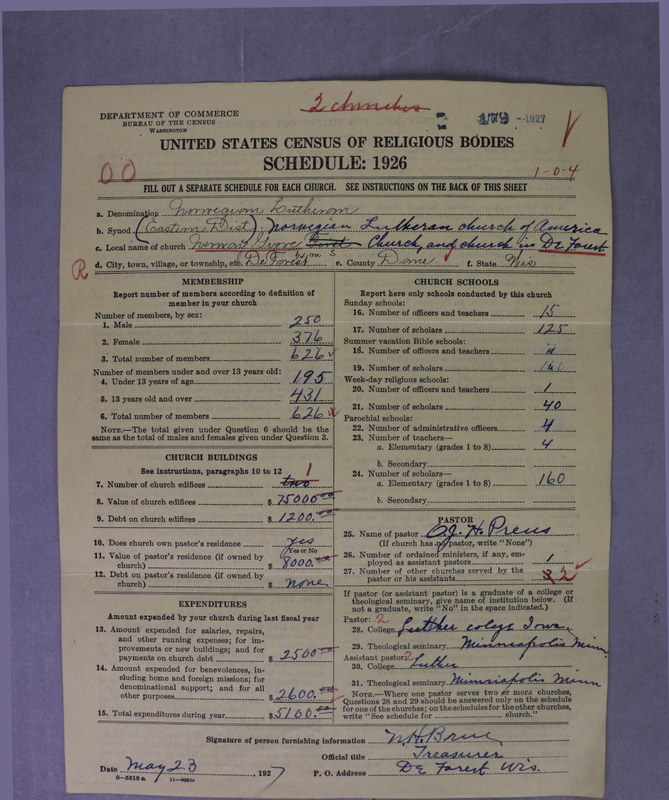 2 churches
DEPARTMENT OF COMMERCE
BUREAU OF THE CENSUS
WASHINGTON
179 -1927
UNITED STATES CENSUS OF RELIGIOUS BODIES
SCHEDULE: 1926
00
1-0-4
FILL OUT A SEPARATE SCHEDULE FOR EACH CHURCH. SEE INSTRUCTIONS ON THE BACK OF THIS SHEET
a. Denomination Norwegian Lutheran
b. Synod (Eastern Dist); Norwegian Lutheran church of America
c. Local name of church Norway Grove Church, and church in De Forest
R
d. City, town, village, or township, etc. (De Forest e. County Dane f. State Wis
MEMBERSHIP
Report number of members according to definition of member in your church
Number of members, by sex:
1. Male 250
2. Female 376
3. Total number of members 626
Number of members under and over 13 years old:
4. Under 13 years of age 195
5. 13 years old and over 431
6. Total number of members 626
NOTE.—The total given under Question 6 should be the same as the total of males and females given under Question 3.
CHURCH BUILDINGS
See instructions, paragraphs 10 to 12
7. Number of church edifices two 1
8. Value of church edifices $ 75000.00
9. Debt on church edifices $ 1200.00
10. Does church own pastor's residence? yes
(Yes or No)
11. Value of pastor's residence (if owned by church) $ 8000.00
12. Debt on pastor's residence (if owned by church) $ none
EXPENDITURES
Amount expended by your church during last fiscal year
13. Amount expended for salaries, repairs, and other running expenses; for improvements or new buildings; and for payments on church debt $ 2500.00
14. Amount expended for benevolences, including home and foreign missions; for denominational support; and for all other purposes $ 2600.00
15. Total expenditures during year $ 5100.00
CHURCH SCHOOLS
Report here only schools conducted by this church
Sunday schools:
16. Number of officers and teachers 15
17. Number of scholars 125
Summer vacation Bible schools:
18. Number of officers and teachers
19. Number of scholars 160
Week-day religious schools:
20. Number of officers and teachers 1
21. Number of scholars 40
Parochial schools:
22. Number of administrative officers 4
23. Number of teachers—
a. Elementary (grades 1 to 8) 4
b. Secondary
24. Number of scholars—
a. Elementary (grades 1 to 8) 160
b. Secondary
PASTOR
25. Name of pastor O.J. H. Preus
(If church has no pastor, write "None")
26. Number of ordained ministers, if any, employed as assistant pastors 1
27. Number of other churches served by the pastor or his assistants 2
If pastor (or assistant pastor) is a graduate of a college or theological seminary, give name of institution below. (If not a graduate, write "No" in the space indicated.)
Pastor: 2
28. College Luther colege Iowa
29. Theological seminary Minniapolis Minn
Assistant pastor: 2
30. College Luther
31. Theological seminary Minniapolis Minn
NOTE.—Where one pastor serves two or more churches, Questions 28 and 29 should be answered only on the schedule for one of the churches; on the schedules for the other churches, write "See schedule for church."
Signature of person furnishing information
Official title Treasurer
Date May 23, 1927 P. O. Address De Forest Wis.